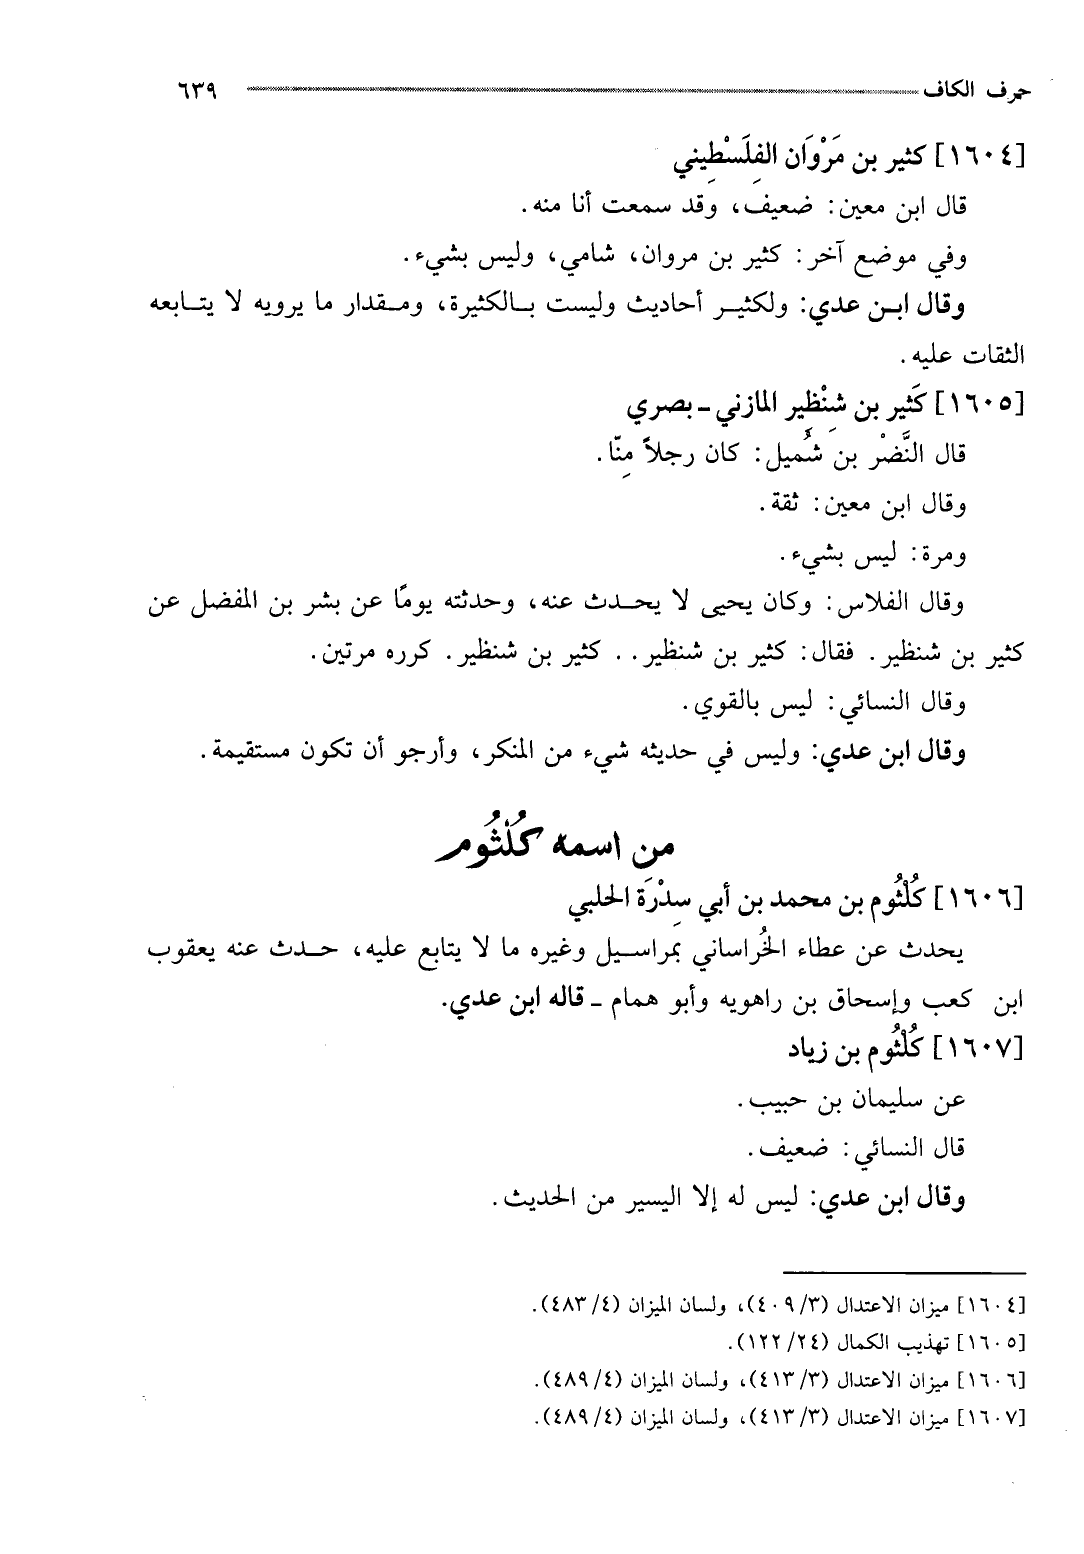 حرف الكاف ٦٣٩
[١٦٠٤] كثير بن مَرْوَان الفِلَسْطِيني
قال ابن معين: ضعيف، وقد سمعت أنا منه.
وفي موضع آخر: كثير بن مروان، شامي، وليس بشيء.
وقال ابن عدي: ولكثير أحاديث وليست بالكثيرة، ومقدار ما يرويه لا يتابعه
الثقات عليه.
[١٦٠٥] كَثير بن شِنْظِير المازني ـ بصري
قال النَّضْر بن شُميل: كان رجلاً مِنّا.
وقال ابن معين: ثقة.
ومرة: ليس بشيء.
وقال الفلاس: وكان يحيى لا يحدث عنه، وحدثته يومًا عن بشر بن المفضل عن
كثير بن شنظير. فقال: كثير بن شنظير.. كثير بن شنظير. كرره مرتين.
وقال النسائي: ليس بالقوي.
وقال ابن عدي: وليس في حديثه شيء من المنكر، وأرجو أن تكون مستقيمة.
من اسمه كُلْثُوم
[١٦٠٦] كُلْثُوم بن محمد بن أبي سِدْرَة الحلبي
يحدث عن عطاء الخُراساني بمراسيل وغيره ما لا يتابع عليه، حدث عنه يعقوب
ابن كعب وإسحاق بن راهويه وأبو همام ـ قاله ابن عدي.
[١٦٠٧] كُلْثُوم بن زياد
عن سليمان بن حبيب.
قال النسائي: ضعيف.
وقال ابن عدي: ليس له إلا اليسير من الحديث.
[١٦٠٤] ميزان الاعتدال (٤٠٩/٣)، ولسان الميزان (٤٨٣/٤).
[١٦٠٥] تهذيب الكمال (١٢٢/٢٤).
[١٦٠٦] ميزان الاعتدال (٤١٣/٣)، ولسان الميزان (٤٨٩/٤).
[١٦٠٧] ميزان الاعتدال (٤١٣/٣)، ولسان الميزان (٤٨٩/٤).